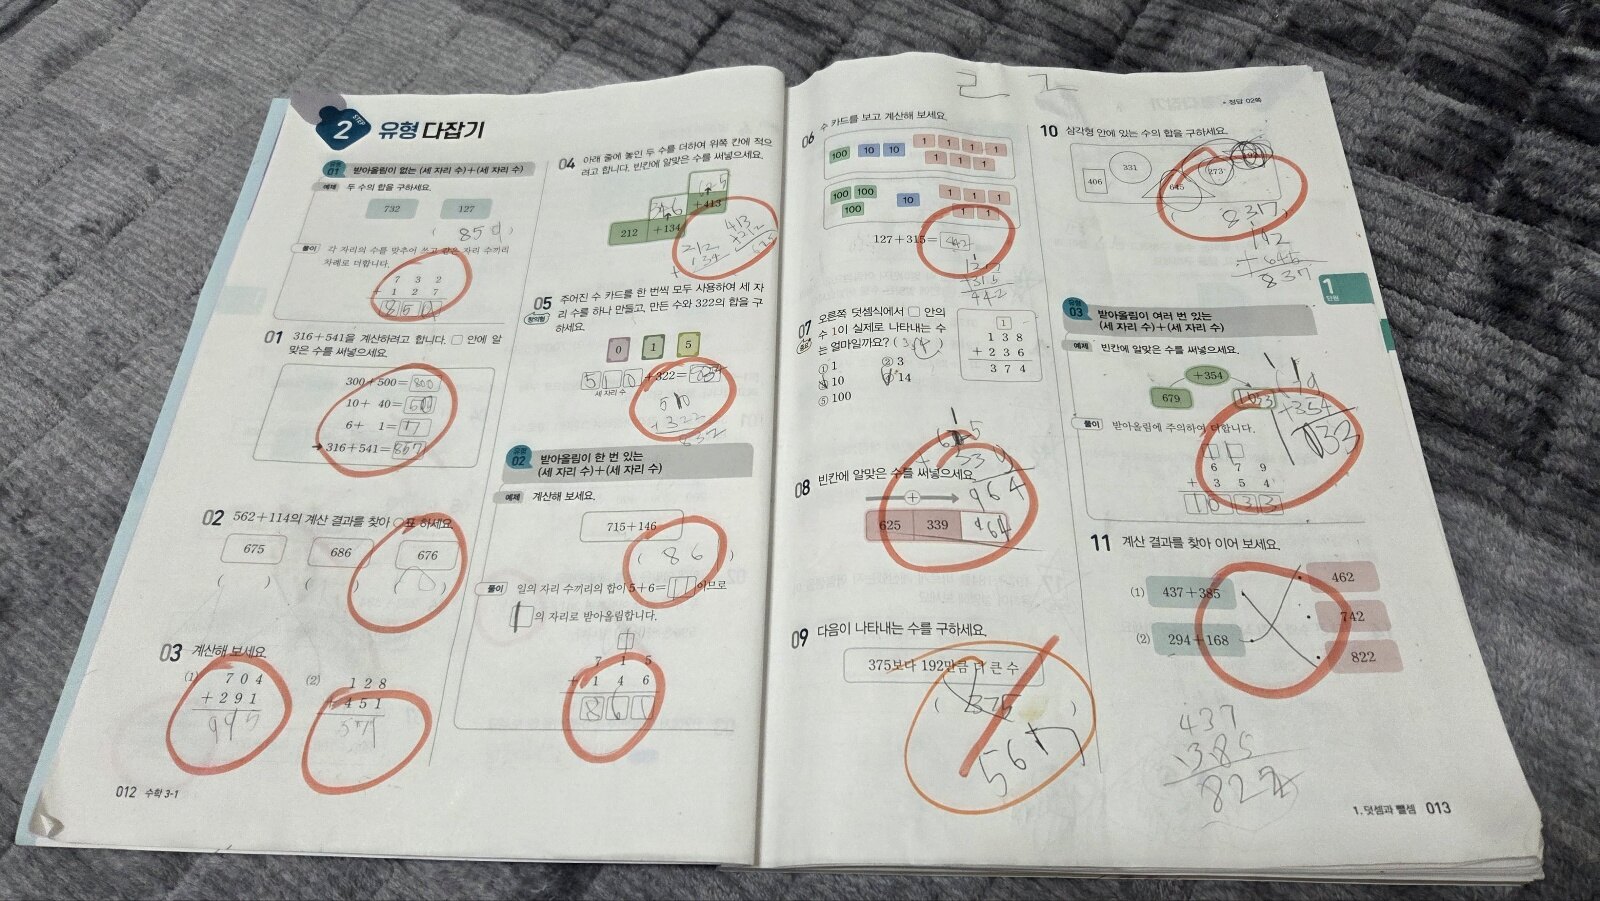 STEP
2 유형 다잡기
유형 01 받아올림이 없는 (세 자리 수)+(세 자리 수)
예제 두 수의 합을 구하세요.
732 127
( 859 )
풀이 각 자리의 수를 맞추어 쓰고 같은 자리 수끼리
차례로 더합니다.
7 3 2
+ 1 2 7
8 5
01 316+541을 계산하려고 합니다. □ 안에 알
맞은 수를 써넣으세요.
300+500= 800
10+ 40=
6+ 1= 7
→ 316+541= 857
02 562+114의 계산 결과를 찾아 ○표 하세요.
675 686 676
( ) ( ) ( O )
03 계산해 보세요.
(1) 7 0 4
+ 2 9 1
(2) 1 2 8
+ 4 5 1
012 수학 3-1
04 아래 줄에 놓인 두 수를 더하여 위쪽 칸에 적으
려고 합니다. 빈칸에 알맞은 수를 써넣으세요.
+413
212 +134
413
+212
212
134
+
05 주어진 수 카드를 한 번씩 모두 사용하여 세 자
창의형 리 수를 하나 만들고, 만든 수와 322의 합을 구
하세요.
0 1 5
5 1 0 +322=
세 자리 수
510
+322
832
유형 02 받아올림이 한 번 있는
(세 자리 수)+(세 자리 수)
예제 계산해 보세요.
715+146
( 86 )
풀이 일의 자리 수끼리의 합이 5+6=11이므로
1의 자리로 받아올림합니다.
1
7 1 5
+ 1 4 6
8 6 1
06 수 카드를 보고 계산해 보세요.
100 10 10 1 1 1 1
1 1 1
100 100 10 1 1 1
100 1 1
127+315= 442
1
127
315
442
07 오른쪽 덧셈식에서 □ 안의
중요 수 1이 실제로 나타내는 수
는 얼마일까요? ( )
① 1 ② 3
③ 10 ④ 14
⑤ 100
1
1 3 8
+ 2 3 6
3 7 4
08 빈칸에 알맞은 수를 써넣으세요.
964
+
625 339 964
09 다음이 나타내는 수를 구하세요.
375보다 192만큼 더 큰 수
( 375 )
567
정답 02쪽
10 삼각형 안에 있는 수의 합을 구하세요.
406 331 645 273 192
( 837 )
192
+ 645
837
1
단원
유형 03 받아올림이 여러 번 있는
(세 자리 수)+(세 자리 수)
예제 빈칸에 알맞은 수를 써넣으세요.
+354
679 1033
+354
1033
풀이 받아올림에 주의하여 더합니다.
6 7 9
+ 3 5 4
1 0 3 3
11 계산 결과를 찾아 이어 보세요.
(1) 437+385 462
742
(2) 294+168 822
437
385
822
1. 덧셈과 뺄셈 013